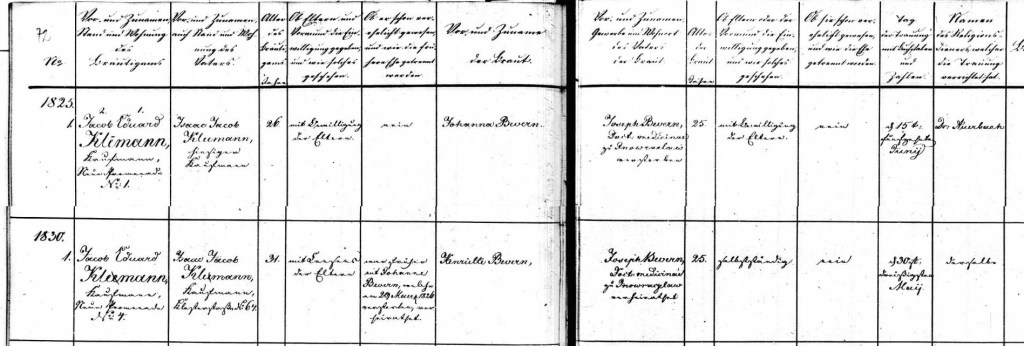 72
No
Vor- und Zunamen,
Stand und Wohnung
des
Bräutigams
Vor- und Zunamen,
auch Stand und Woh-
nung des
Vaters.
Alter
des
Bräuti-
gams
Jahre
Ob Eltern und
Vormund die Ein-
willigung gegeben,
und wie solches
geschehen.
Ob er schon ver-
ehelicht gewesen,
und wie die Ehe
getrennt
worden.
Vor- und Zuname
der Braut.
Vor- und Zunamen,
Gewerbe und Wohnort
des Vaters
der Braut.
Alter
der
Braut
Jahre
Ob Eltern oder der
Vormund die Ein-
willigung gegeben,
und wie solches
geschehen
Ob sie schon ver-
ehelicht gewesen,
und wie die Ehe
getrennt worden.
Tag
der Trauung
mit Buchstaben
und
Zahlen.
Namen
des Religions-
dieners, welcher
die Trauung
verrichtet hat.
1825.
1.
2. 1.
Jacob Eduard
Kliemann,
Kaufmann,
Neue Promenade
No 1.
Isaac Jacob
Kliemann,
hiesiger
Kaufmann
26
mit Bewilligung
der Eltern
nein
Johanna Bevern.
Joseph Bevern,
Doct. medicinae
zu Inowraclaw
verstorben
25.
mit Bewilligung
der Eltern
nein
d 15t.
fünfzehnten
Junij
Dr. Auerbach
1830.
1.
Jacob Eduard
Kliemann,
Kaufmann,
Neue Promenade
No 4.
Isaac Jacob
Kliemann,
Kaufmann,
Klosterstraße No 64.
31.
mit Consens
der Eltern
war früher
mit Johanne
Bevern, welche
am 29 März 1826
verstorben, ver-
heirathet.
Henriette Bevern,
Joseph Bevern,
Doct. medicinae
zu Inowraclaw
verheirathet
25.
selbstständig
nein
d 30st.
dreißigsten
Maij
derselbe